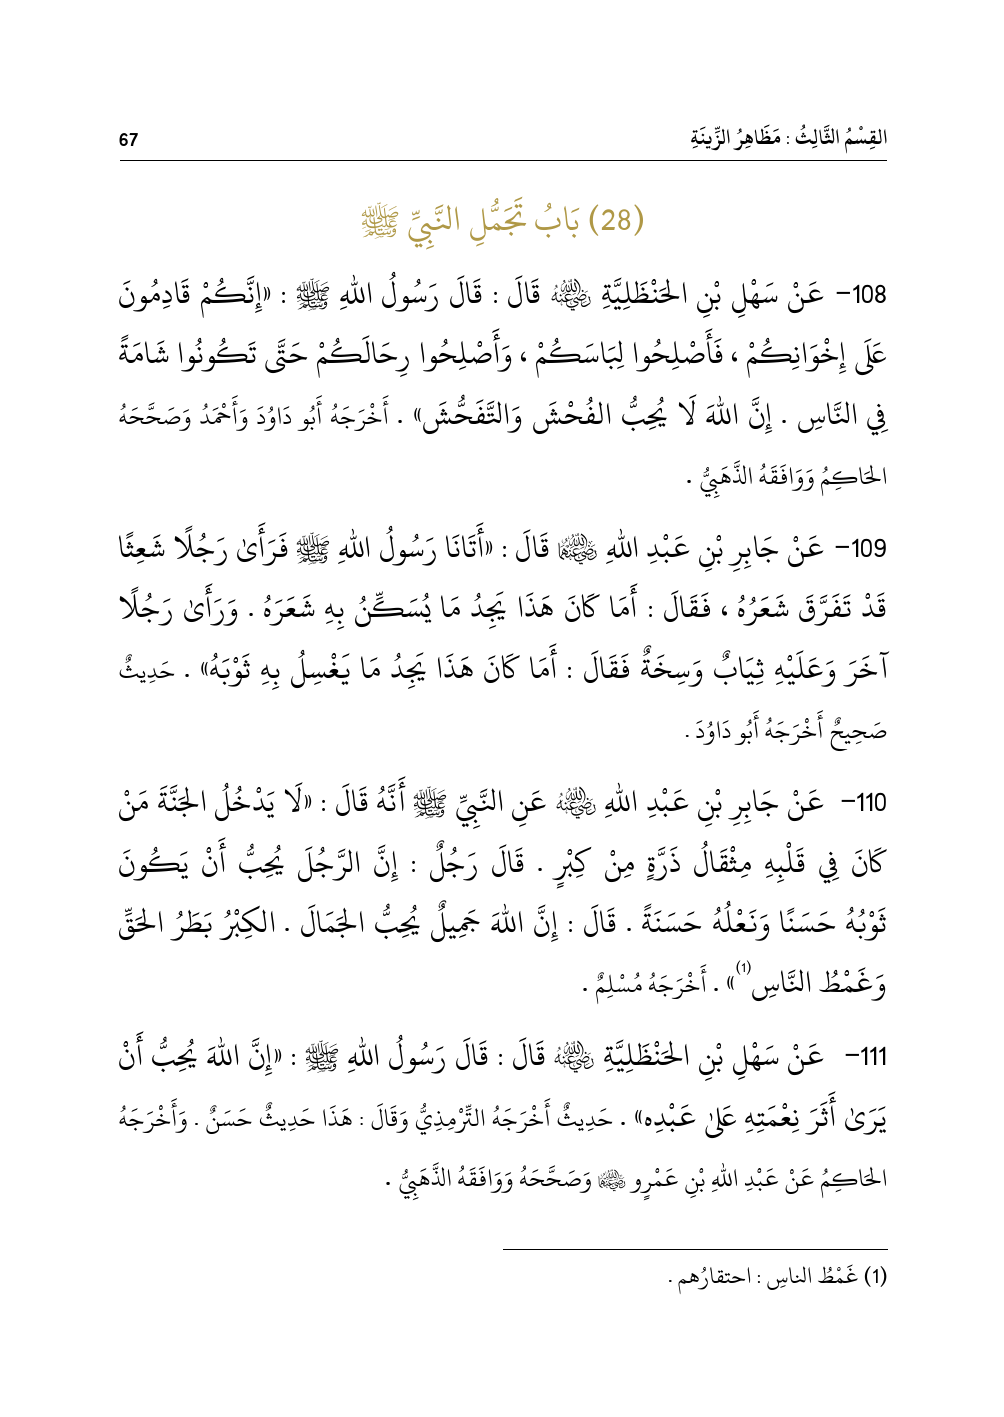 القِسْمُ الثَّالِثُ : مَظَاهِرُ الزِّينَةِ 67
(28) بَابُ تَجَمُّلِ النَّبِيِّ ﷺ
108- عَنْ سَهْلِ بْنِ الحَنْظَلِيَّةِ رضي الله عنه قَالَ : قَالَ رَسُولُ اللهِ ﷺ : «إِنَّكُمْ قَادِمُونَ
عَلَى إِخْوَانِكُمْ ، فَأَصْلِحُوا لِبَاسَكُمْ ، وَأَصْلِحُوا رِحَالَكُمْ حَتَّى تَكُونُوا شَامَةً
فِي النَّاسِ . إِنَّ اللهَ لَا يُحِبُّ الفُحْشَ وَالتَّفَحُّشَ» . أَخْرَجَهُ أَبُو دَاوُدَ وَأَحْمَدُ وَصَحَّحَهُ
الحَاكِمُ وَوَافَقَهُ الذَّهَبِيُّ .
109- عَنْ جَابِرِ بْنِ عَبْدِ اللهِ رضي الله عنهما قَالَ : «أَتَانَا رَسُولُ اللهِ ﷺ فَرَأَىٰ رَجُلًا شَعِثًا
قَدْ تَفَرَّقَ شَعَرُهُ ، فَقَالَ : أَمَا كَانَ هَذَا يَجِدُ مَا يُسَكِّنُ بِهِ شَعَرَهُ . وَرَأَىٰ رَجُلًا
آخَرَ وَعَلَيْهِ ثِيَابٌ وَسِخَةٌ فَقَالَ : أَمَا كَانَ هَذَا يَجِدُ مَا يَغْسِلُ بِهِ ثَوْبَهُ» . حَدِيثٌ
صَحِيحٌ أَخْرَجَهُ أَبُو دَاوُدَ .
110- عَنْ جَابِرِ بْنِ عَبْدِ اللهِ رضي الله عنه عَنِ النَّبِيِّ ﷺ أَنَّهُ قَالَ : «لَا يَدْخُلُ الجَنَّةَ مَنْ
كَانَ فِي قَلْبِهِ مِثْقَالُ ذَرَّةٍ مِنْ كِبْرٍ . قَالَ رَجُلٌ : إِنَّ الرَّجُلَ يُحِبُّ أَنْ يَكُونَ
ثَوْبُهُ حَسَنًا وَنَعْلُهُ حَسَنَةً . قَالَ : إِنَّ اللهَ جَمِيلٌ يُحِبُّ الجَمَالَ . الكِبْرُ بَطَرُ الحَقِّ
وَغَمْطُ النَّاسِ(1)» . أَخْرَجَهُ مُسْلِمٌ .
111- عَنْ سَهْلِ بْنِ الحَنْظَلِيَّةِ رضي الله عنه قَالَ : قَالَ رَسُولُ اللهِ ﷺ : «إِنَّ اللهَ يُحِبُّ أَنْ
يَرَىٰ أَثَرَ نِعْمَتِهِ عَلىٰ عَبْدِه» . حَدِيثٌ أَخْرَجَهُ التِّرْمِذِيُّ وَقَالَ : هَذَا حَدِيثٌ حَسَنٌ . وَأَخْرَجَهُ
الحَاكِمُ عَنْ عَبْدِ اللهِ بْنِ عَمْرٍو رضي الله عنهما وَصَحَّحَهُ وَوَافَقَهُ الذَّهَبِيُّ .
(1) غَمْطُ الناسِ : احتقارُهم .